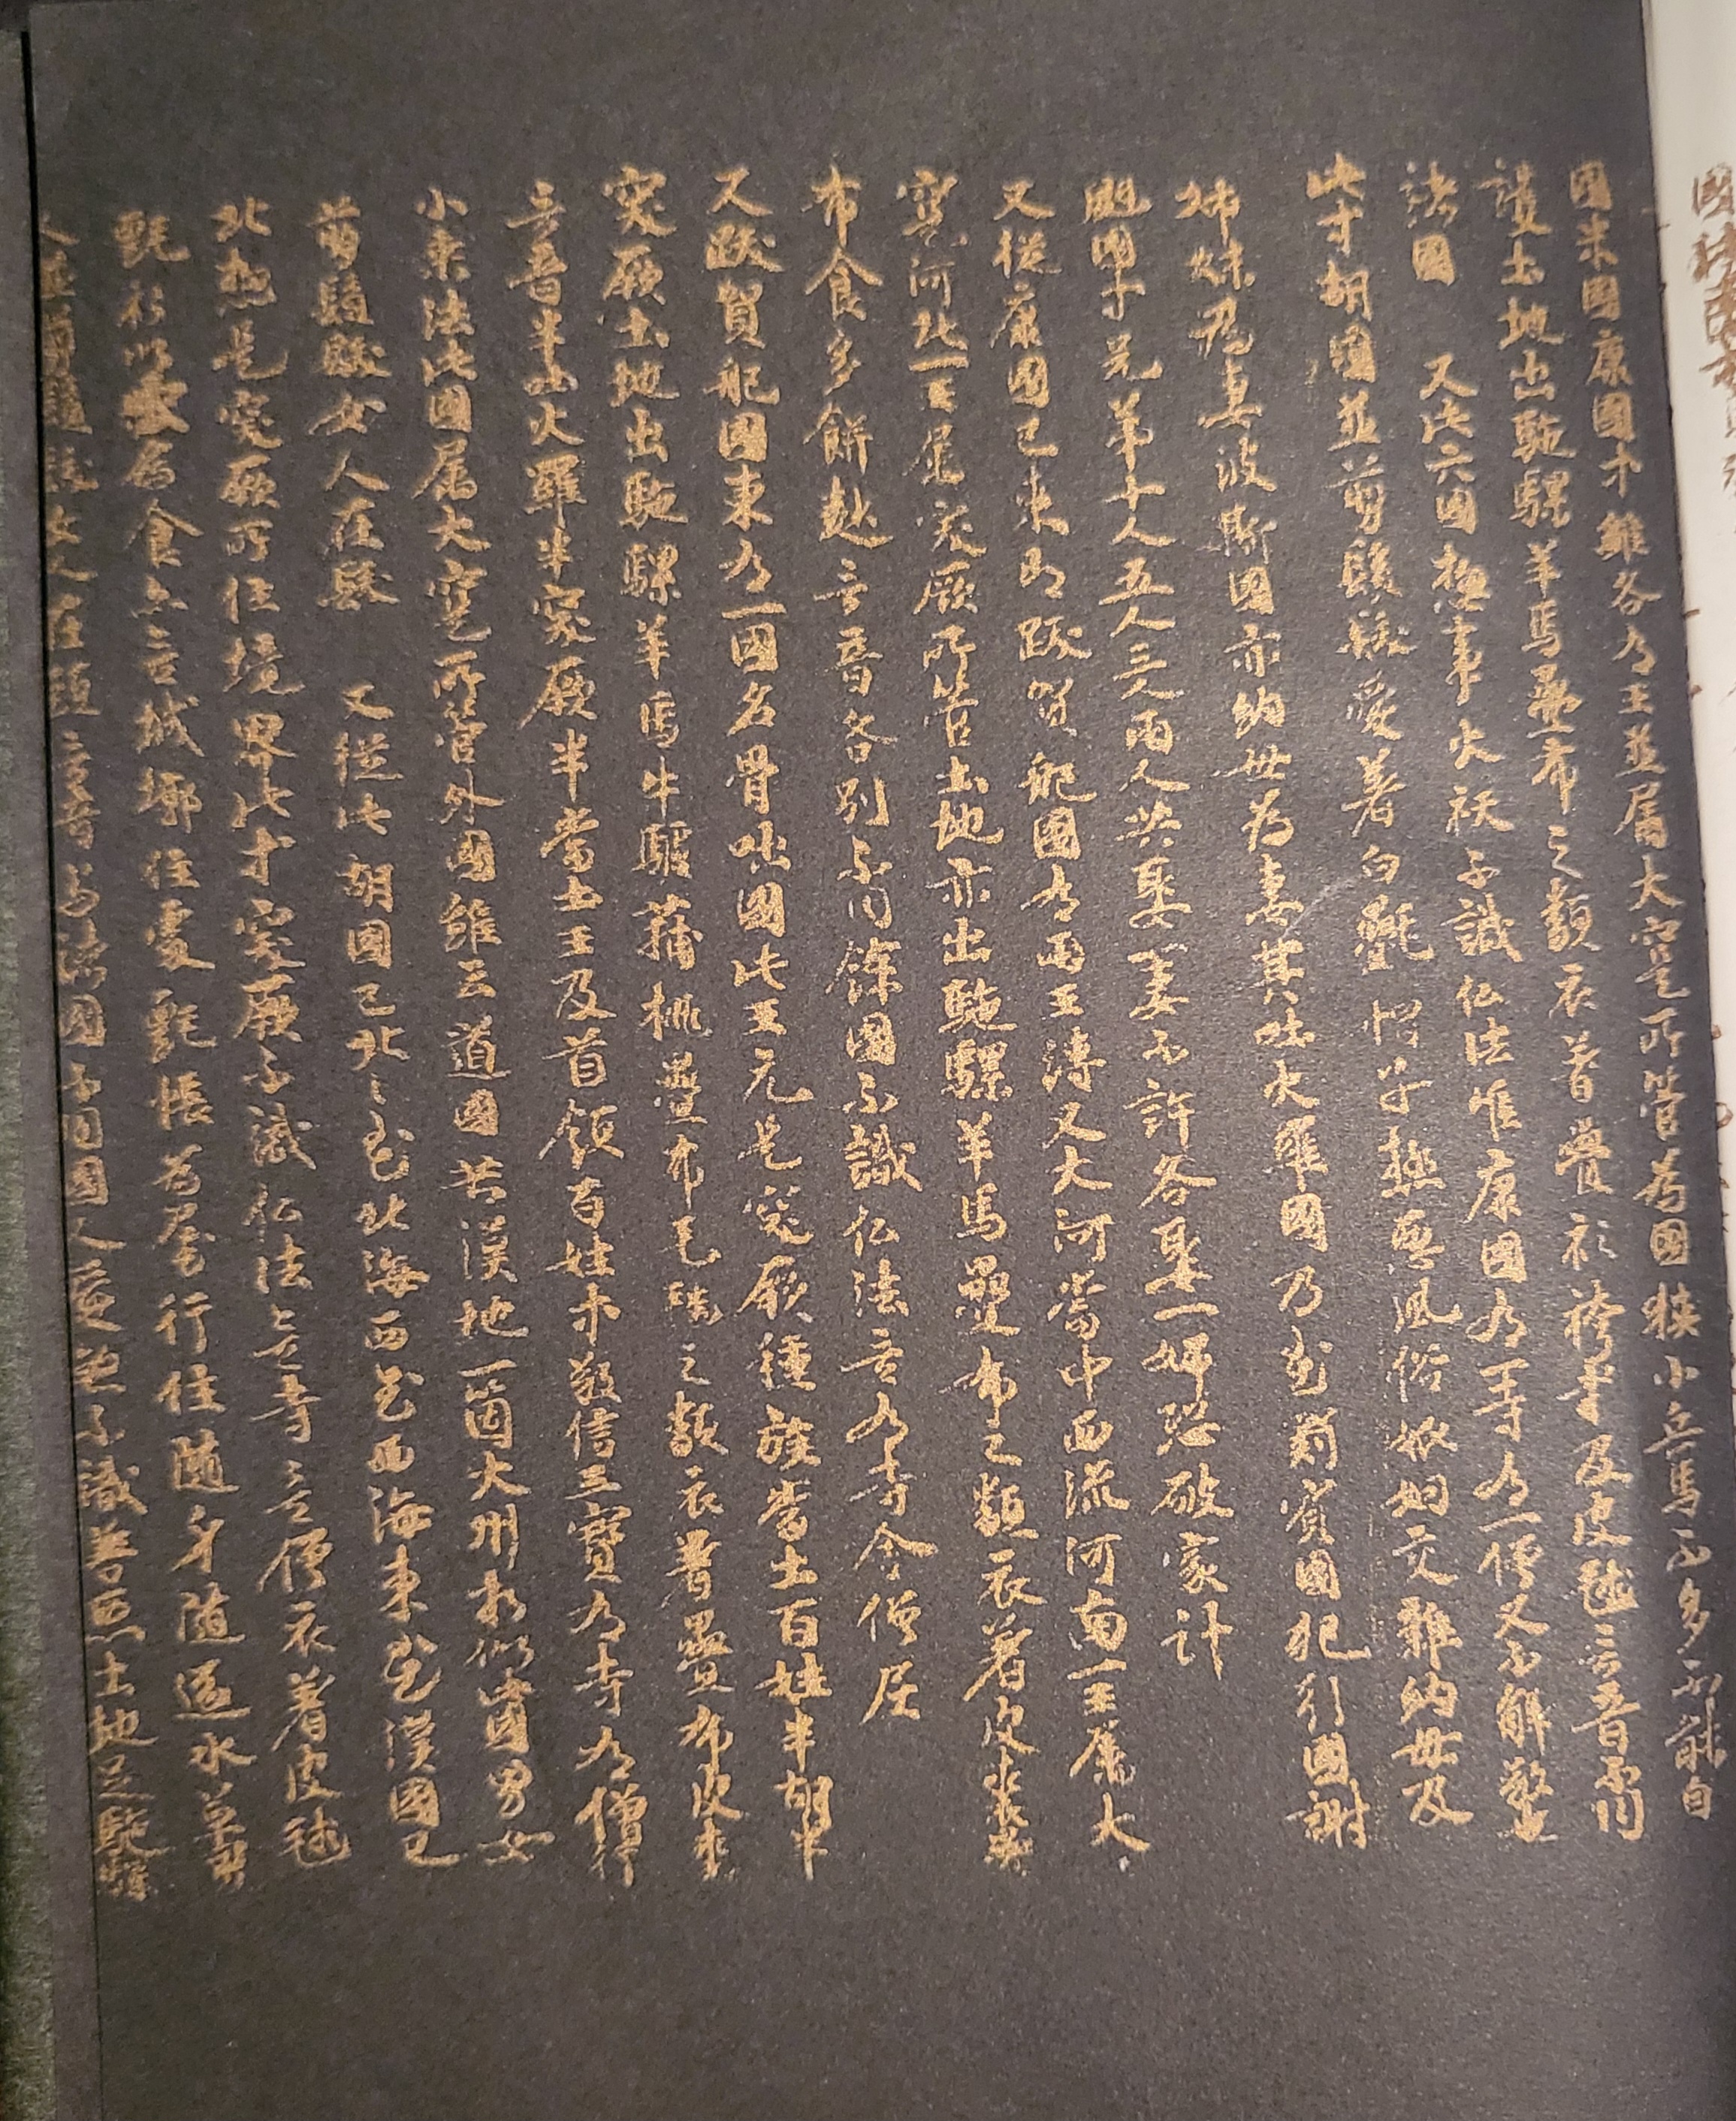 國米國康國才雖各有王並屬大寔所管為國狹小兵馬不多不能自
護土地出駞騾羊馬疊布之類衣著疊衫袴等及皮毬言音不同
諸國 又此六國揔事火祅不識仏法唯康國有一寺有一僧又不解敬
此才胡國並剪鬢髮愛著白氎帽子極惡風俗婚姻交雜納母及
姊妹為妻波斯國亦納母為妻其吐火羅國乃至罽賓國犯引國謝
䫻國才兄弟十人五人三人兩人共娶一妻不許各娶一婦恐破家計
又從康國已東即跋賀那國有兩王縛叉大河當中西流河南一王屬大
寔河北一王屬突厥所管土地亦出駞騾羊馬疊布之類衣著皮裘疊
布食多餅麨言音各別不同餘國不識仏法無有寺舍僧尼
又跋賀那國東有一國名骨咄國此王元是突厥種族當土百姓半胡半
突厥土地出駞騾羊馬牛驢蒲桃疊布毛毯之類衣著疊布皮裘
言音半吐火羅半突厥半當土王及首領百姓才敬信三寶有寺有僧行
小乘法此國屬大寔所管外國雖云道國共漢地一箇大州相似此國男女
剪鬢髮女人在髮 又從此胡國已北北至北海西至西海東至漢國已
北揔是突厥所住境界此才突厥不識仏法無寺無僧衣著皮毬
氈衫以虫為食亦無城墎住處氈帳為屋行住隨身隨逐水草男
人並剪鬢髮女人在頭言音与諸國不同國人愛煞不識善惡土地足駞騾